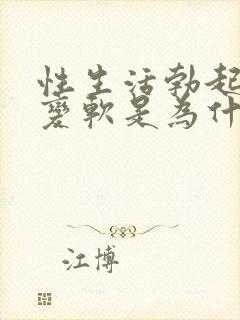 性生活勃起
變軟是為什
江博